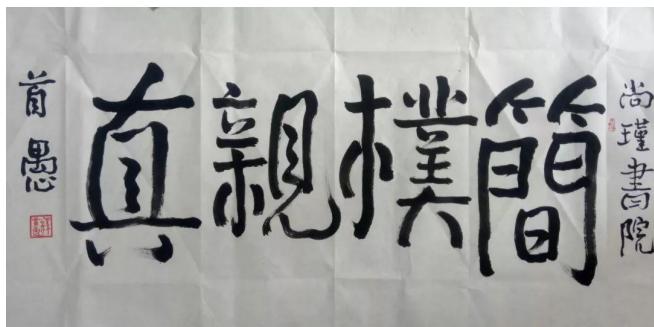 尚瑾書院
簡樸親真
首愚